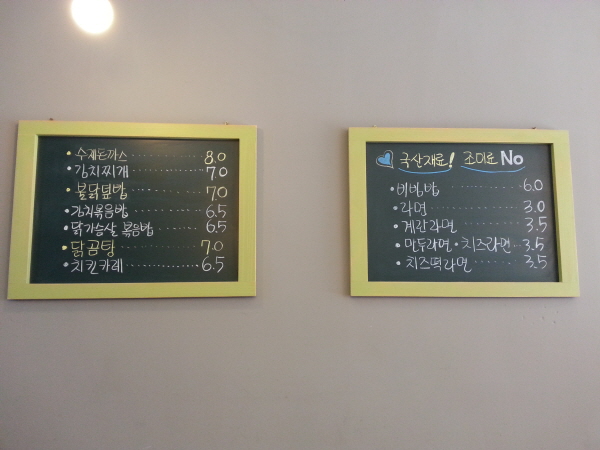 • 수제돈까스 ........... 8.0
• 김치찌개 ........... 7.0
• 불닭덮밥 ........... 7.0
• 김치볶음밥 ........... 6.5
• 닭가슴살 볶음밥 ..... 6.5
• 닭곰탕 ........... 7.0
• 치킨카레 ........... 6.5
국산재료! 조미료 No
• 비빔밥 ........... 6.0
• 라면 ........... 3.0
• 계란라면 ........... 3.5
• 만두라면 • 치즈라면 ... 3.5
• 치즈떡라면 ...... 3.5